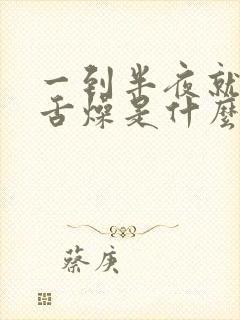 一到半夜就
舌燥是什麼
蔡庚